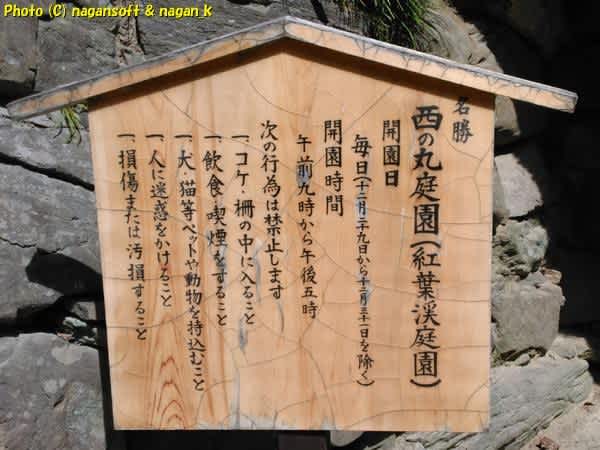 Photo (C) nagansoft & nagan k
名勝
西の丸庭園(紅葉渓庭園)
開園日
毎日(十二月二十九日から十二月三十一日を除く)
開園時間
午前九時から午後五時
次の行為は禁止します
一、コケ・柵の中に入ること
一、飲食・喫煙をすること
一、犬・猫等ペットや動物を持込むこと
一、人に迷惑をかけること
一、損傷または汚損すること